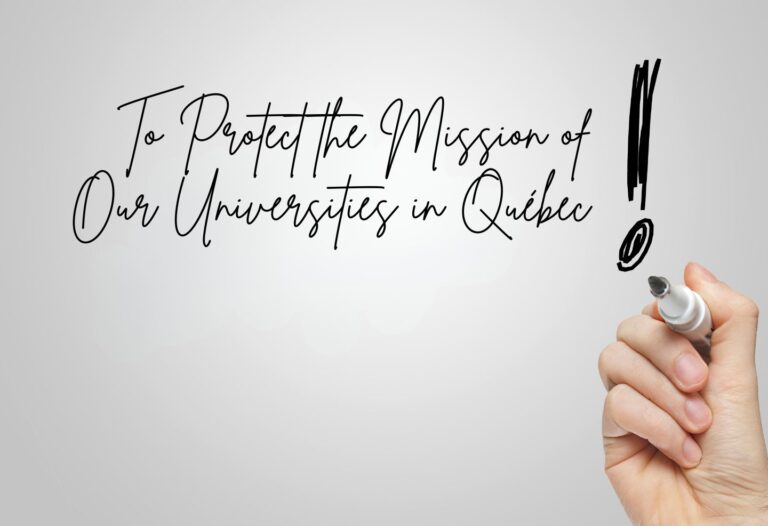 To Protect the Mission of
Our Universities in Québec !